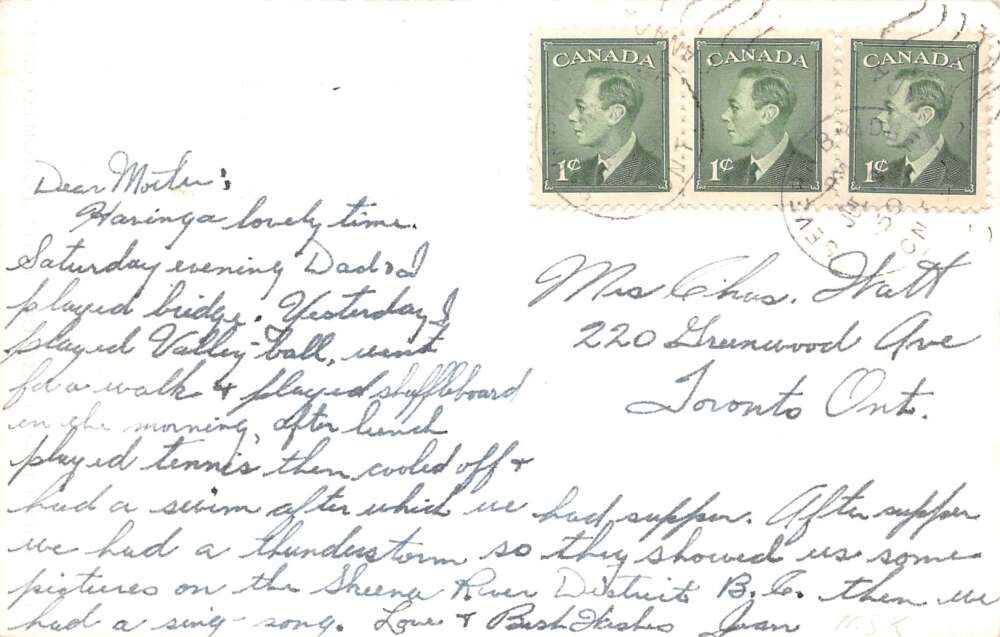 CANADA CANADA CANADA
1¢ 1¢ 1¢
Dear Mother;
Having a lovely time.
Saturday evening Dad & I
played bridge. Yesterday I
played Valley-ball, went
for a walk & played shuffleboard
in the morning, after lunch
played tennis then cooled off &
had a swim after which we had supper. After supper
we had a thunderstorm so they showed us some
pictures on the Skeena River District B.C. then we
had a sing-song. Love & Best Wishes Jean
Mrs Chas. Watt
220 Greenwood Ave
Toronto Ont.